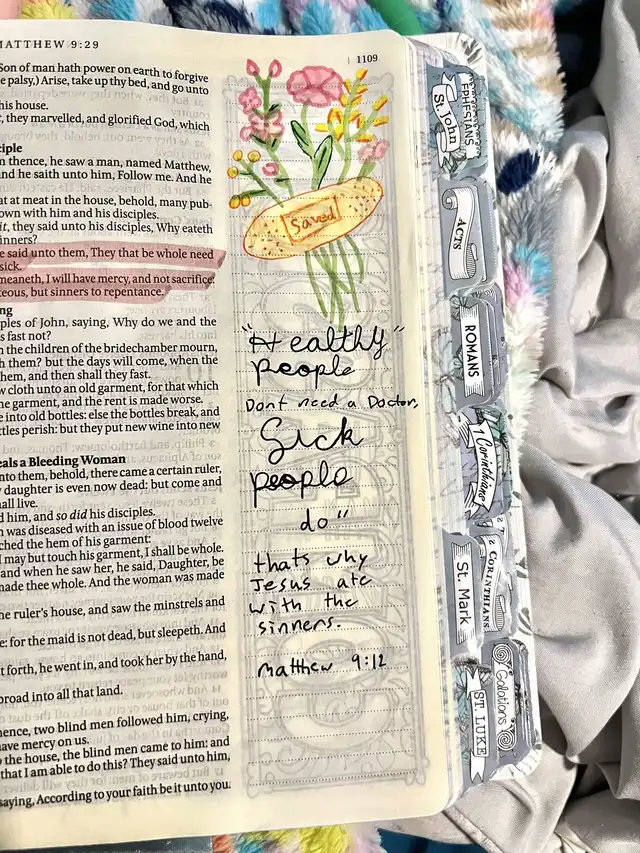 MATTHEW 9:29
1109
Son of man hath power on earth to forgive
e palsy,) Arise, take up thy bed, and go unto
his house.
, they marvelled, and glorified God, which
ciple
n thence, he saw a man, named Matthew,
and he saith unto him, Follow me. And he
at at meat in the house, behold, many pub-
own with him and his disciples.
it, they said unto his disciples, Why eateth
inners?
e said unto them, They that be whole need
sick.
meaneth, I will have mercy, and not sacrifice:
teous, but sinners to repentance.
ng
ples of John, saying, Why do we and the
s fast not?
n the children of the bridechamber mourn,
h them? but the days will come, when the
them, and then shall they fast.
w cloth unto an old garment, for that which
he garment, and the rent is made worse.
e into old bottles: else the bottles break, and
ttles perish: but they put new wine into new
eals a Bleeding Woman
unto them, behold, there came a certain ruler,
y daughter is even now dead: but come and
hall live.
d him, and so did his disciples.
n was diseased with an issue of blood twelve
ched the hem of his garment:
I may but touch his garment, I shall be whole.
and when he saw her, he said, Daughter, be
made thee whole. And the woman was made
he ruler's house, and saw the minstrels and
e: for the maid is not dead, but sleepeth. And
t forth, he went in, and took her by the hand,
broad into all that land.
hence, two blind men followed him, crying,
have mercy on us.
o the house, the blind men came to him: and
that I am able to do this? They said unto him,
saying, According to your faith be it unto you.
Saved
"Healthy"
People
Dont need a Doctor,
Sick
people
do"
thats why
Jesus ate
with the
sinners.
matthew 9:12
EPHESIANS
St. John
ACTS
ROMANS
1 Corinthians
2 CORINTHIANS
St. Mark
Galations
ST. LUKE